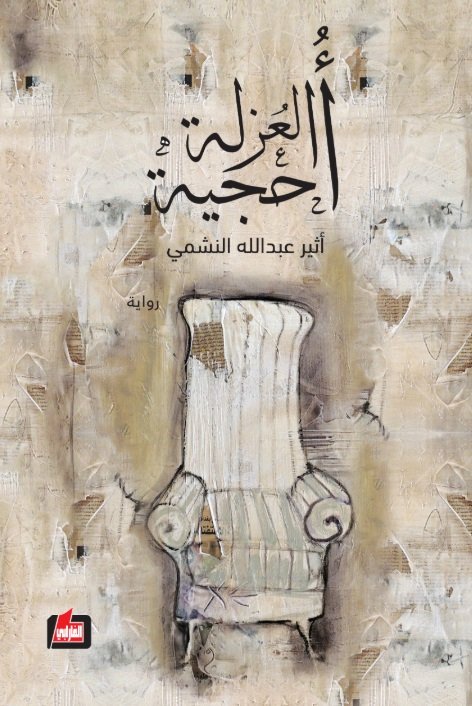 أُحجية العُزلة
أثير عبدالله النشمي
رواية
الفارابي